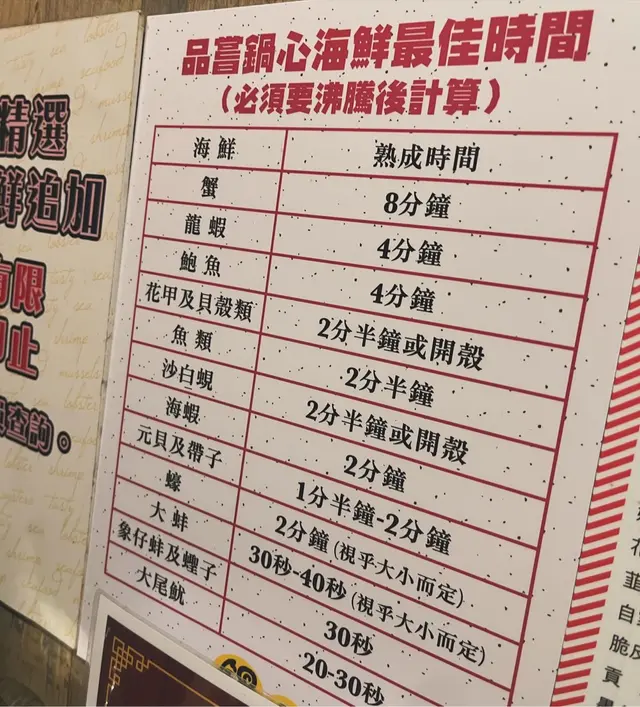 品嘗鍋心海鮮最佳時間
(必須要沸騰後計算)
海鮮 熟成時間
蟹 8分鐘
龍蝦 4分鐘
鮑魚 4分鐘
花甲及貝殼類 2分半鐘或開殼
魚類 2分半鐘
沙白蜆 2分半鐘或開殼
海蝦 2分鐘
元貝及帶子 1分半鐘-2分鐘
蠔 2分鐘(視乎大小而定)
大蚌 30秒-40秒(視乎大小而定)
象仔蚌及蟶子 30秒
大尾魷 20-30秒
精選
鮮追加
有限
即止
查詢。
自
脆皮
貢